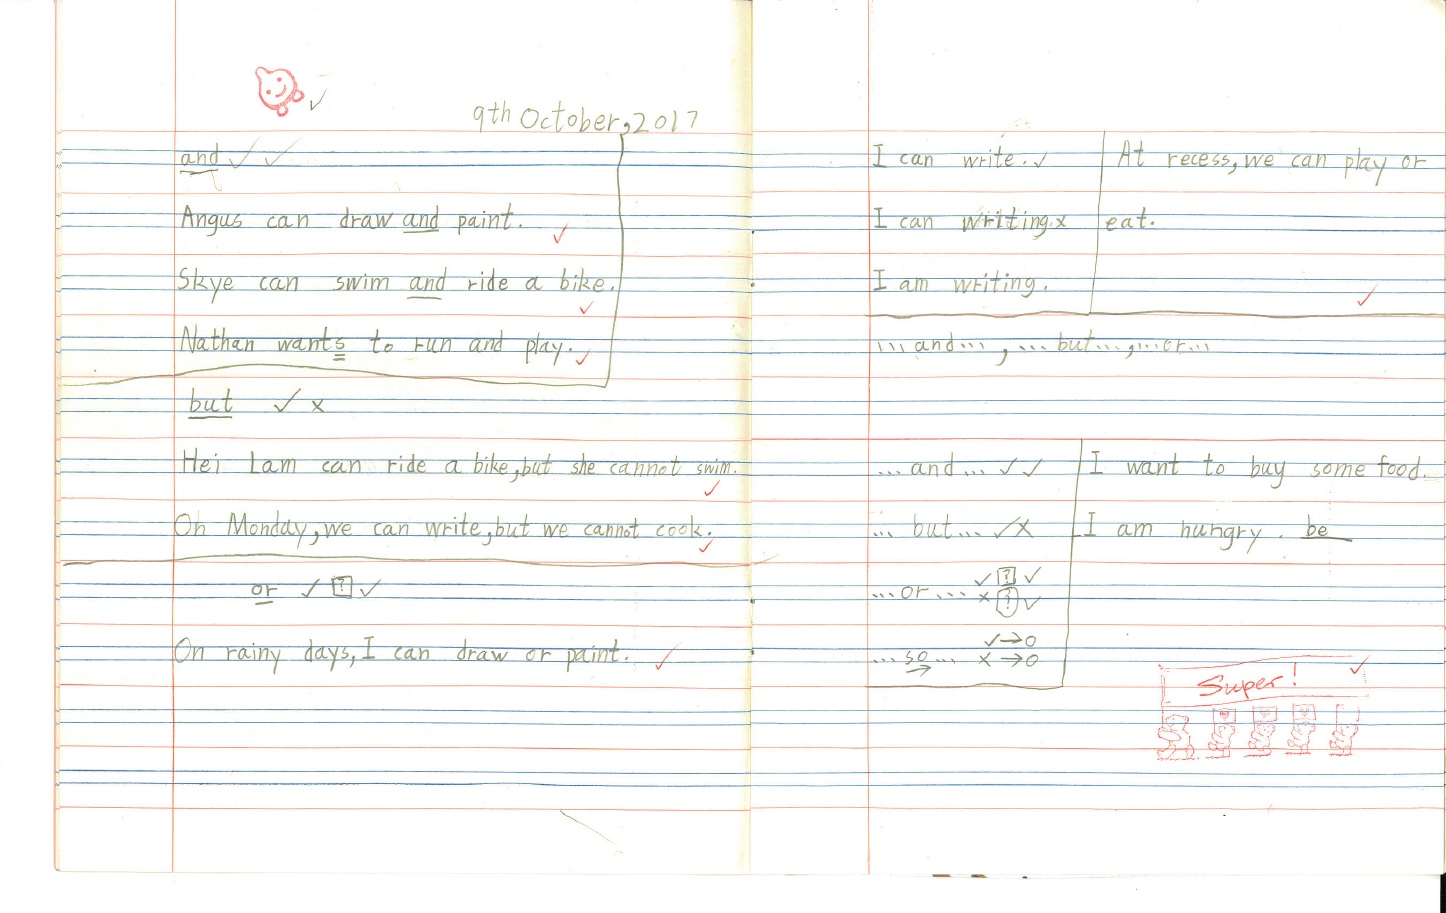 9th October, 2017
and ✓ ✓
Angus can draw and paint.
Skye can swim and ride a bike.
Nathan wants to run and play.
but ✓ x
Hei Lam can ride a bike, but she cannot swim.
On Monday, we can write, but we cannot cook.
or ✓ ? ✓
On rainy days, I can draw or paint.
I can write. ✓
I can writing. x
I am writing.
At recess, we can play or
eat.
... and ... , ... but ... , ... or ...
... and ... ✓ ✓
... but ... ✓ x
... or ... ✓ ? ✓
x ? ✓
... so ... ✓ → O
x → O
I want to buy some food.
I am hungry. be
Super!